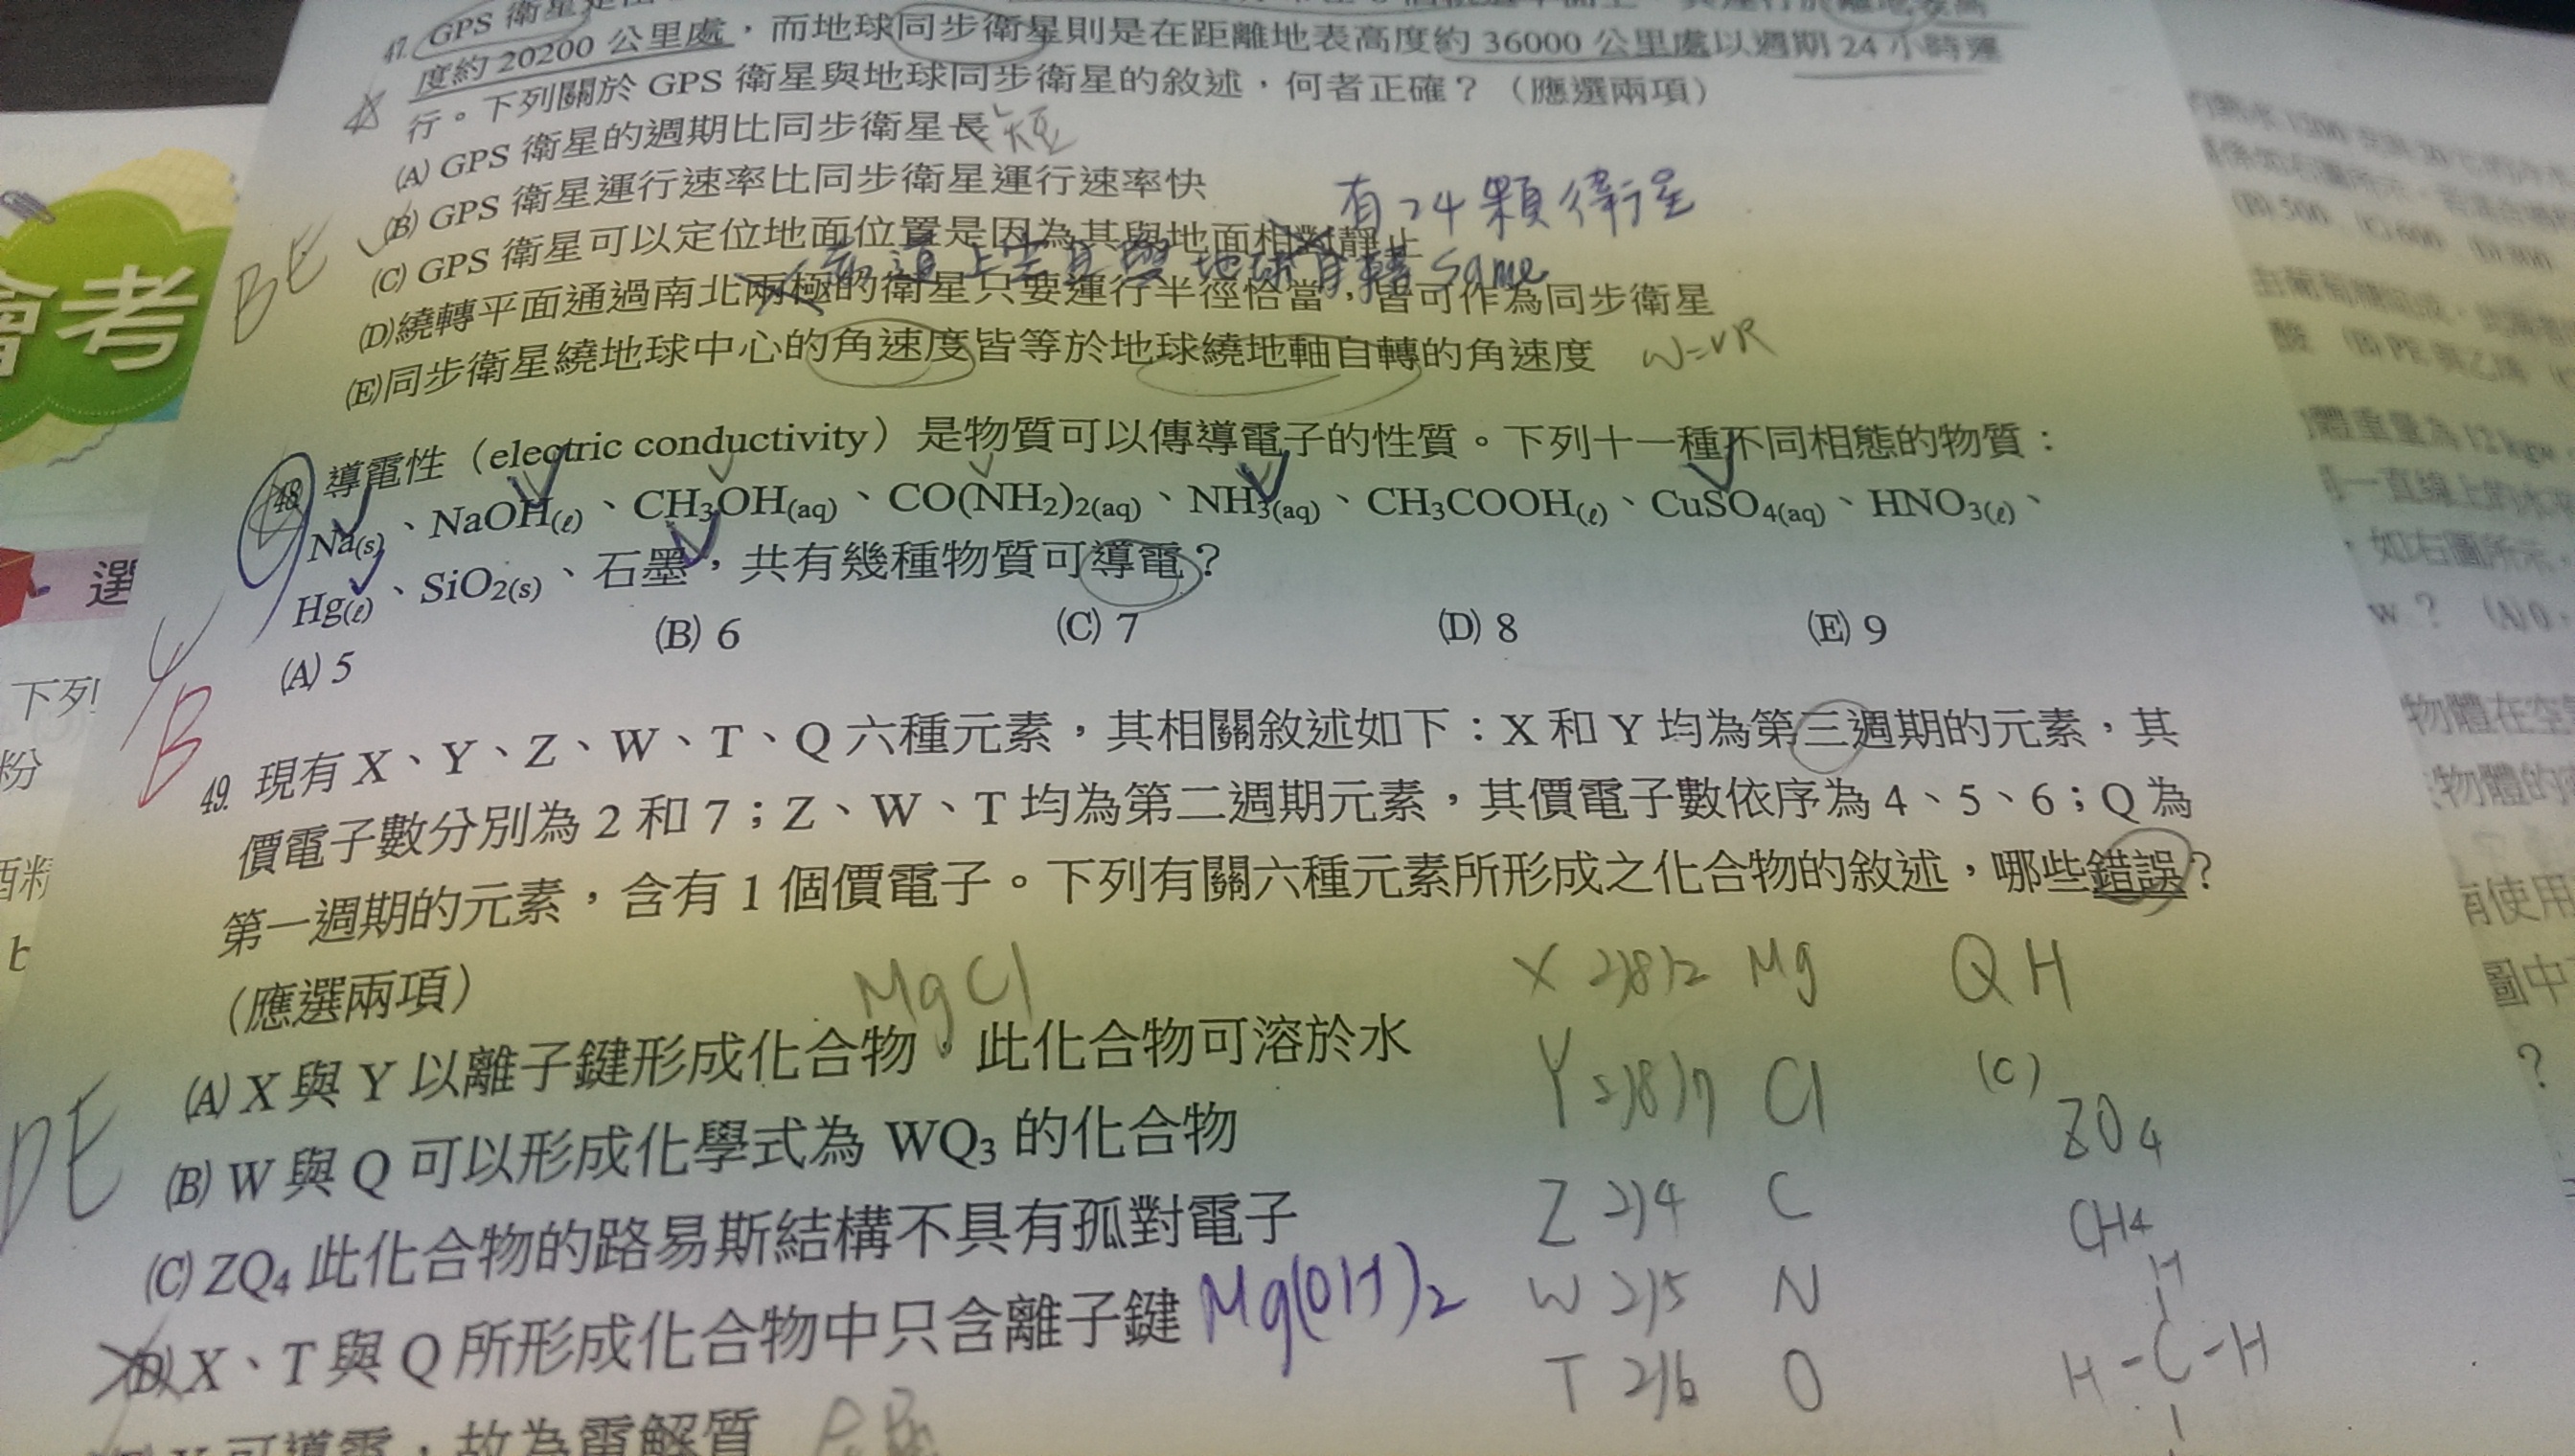 47. GPS 衛星
度約 20200 公里處，而地球同步衛星則是在距離地表高度約 36000 公里處以週期 24 小時運
行。下列關於 GPS 衛星與地球同步衛星的敘述，何者正確？（應選兩項）
(A) GPS 衛星的週期比同步衛星長 短
(B) GPS 衛星運行速率比同步衛星運行速率快
有24顆衛星
BE
(C) GPS 衛星可以定位地面位置是因為其與地面相對靜止
赤道上空且與地球自轉same
(D)繞轉平面通過南北兩極的衛星只要運行半徑恰當，皆可作為同步衛星
(E)同步衛星繞地球中心的角速度皆等於地球繞地軸自轉的角速度 W=VR
48. 導電性（electric conductivity）是物質可以傳導電子的性質。下列十一種不同相態的物質：
Na(s)、NaOH(ℓ)、CH3OH(aq)、CO(NH2)2(aq)、NH3(aq)、CH3COOH(ℓ)、CuSO4(aq)、HNO3(ℓ)、
Hg(ℓ)、SiO2(s)、石墨，共有幾種物質可導電？
(A) 5 (B) 6 (C) 7 (D) 8 (E) 9
B
49. 現有 X、Y、Z、W、T、Q 六種元素，其相關敘述如下：X 和 Y 均為第三週期的元素，其
價電子數分別為 2 和 7；Z、W、T 均為第二週期元素，其價電子數依序為 4、5、6；Q 為
第一週期的元素，含有 1 個價電子。下列有關六種元素所形成之化合物的敘述，哪些錯誤？
（應選兩項）
MgCl
(A) X 與 Y 以離子鍵形成化合物，此化合物可溶於水
(B) W 與 Q 可以形成化學式為 WQ3 的化合物
DE
(C) ZQ4 此化合物的路易斯結構不具有孤對電子
(D) X、T 與 Q 所形成化合物中只含離子鍵 Mg(OH)2
可導電，故為電解質
X 2)8)2 Mg Q H
Y 2)8)7 Cl
Z 2)4 C
W 2)5 N
T 2)6 O
(C)
ZQ4
CH4
H
H-C-H
會考
選
下列
粉
酒精
b
(B) 500 (C) 600 (D) 800
酸 (B) PE
體重量為 12 kgw
如右圖所示
w ? (A) 0
物體在空
物體的
有使用
圖中
?